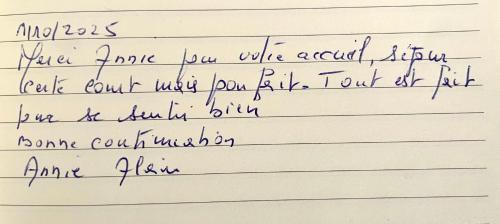 11/10/2025
Merci Annie pour votre accueil, séjour
certe court mais parfait. Tout est fait
pour se sentir bien
Bonne continuation
Annie Alain